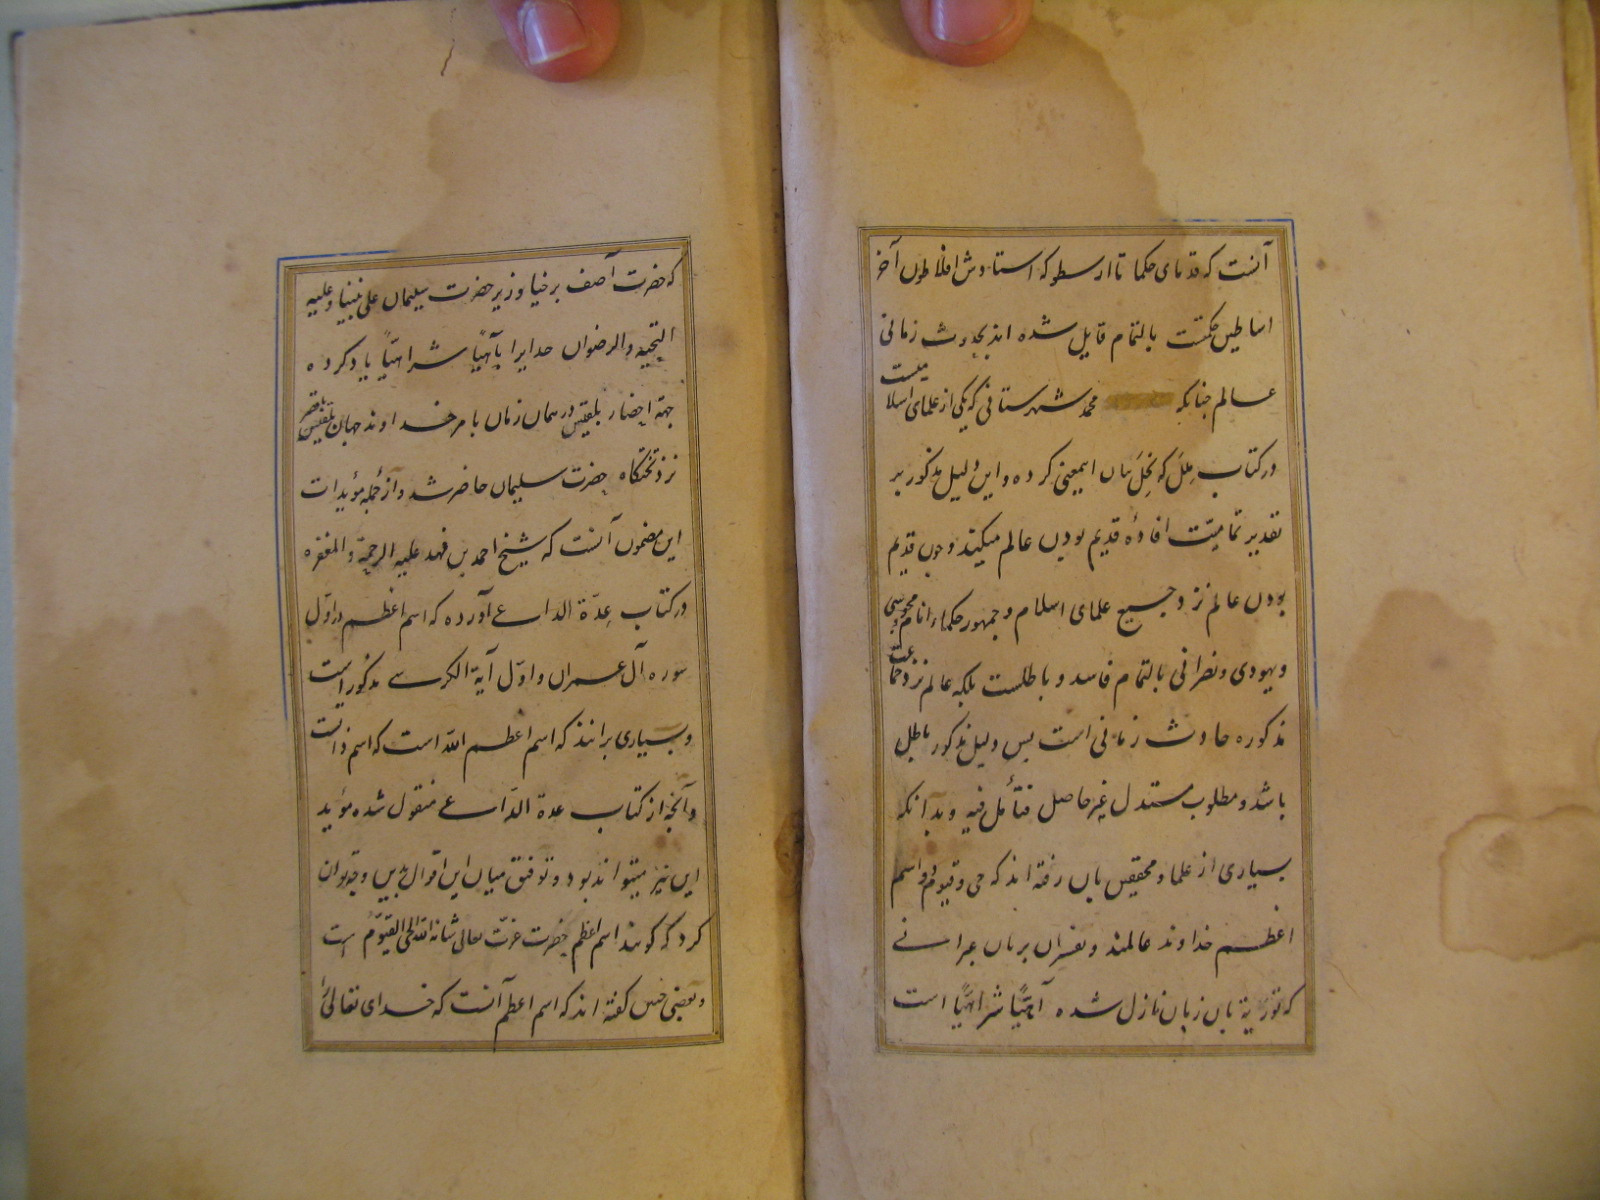 آنست که قدمای حکما تا ارسطو که استادش افلاطون آخر
اساطین حکمتست بالتمام قایل شده اند بحدوث زمانی
عالم چنانکه محمد شهرستانی که یکی از علمای اسلا
میست
در کتاب ملل که نحل بیان اینمعنی کرده و این دلیل مذکور بر
تقدیر تمامیّت افادهٔ قدیم بودن عالم میکند و چون قدیم
بودن عالم نزد جمیع علمای اسلام و جمهور حکماء انام مجوسی و
و یهودی و نصرانی بالتمام فاسد و باطلست بلکه عالم نزد جماعت
مذکوره حادث زمانی است پس دلیل مذکور باطل
باشد و مطلوب مستدل غیر حاصل فتأمل فیه و بدانکه
بسیاری از علما و محققین بان رفته اند که حی و قیوم دو اسم
اعظم خداوند عالمند و مفسران بر بان عبرانی
که توریة بان زبان نازل شده آهیًا شراهیًا است
که حضرت آصف برخیا وزیر حضرت سلیمان علی نبینا و علیه
التحیه والرضوان خدایرا بآهیًا شراهیًا یاد کرده
جهة احضار بلقیس در همان زمان بامر خداوند جهان بلقیس
نزد تختگاه حضرت سلیمان حاضر شد و از جمله مؤیدات
این مضمون آنست که شیخ احمد بن فهد علیه الرحمة والمغفره
در کتاب عدّة الداعی آورده که اسم اعظم در اوّل
سوره آل عمران و اوّل آیة الکرسی مذکور است
و بسیاری برانند که اسم اعظم الله است که اسم ذاتست
و آنچه از کتاب عدة الدّاعی منقول شده مؤید
این نیز میتواند بود و توفیق میان این اقوال باین وجه توان
کرد که گویند اسم اعظم حضرت عزّت تعالی شانه الله الحی القیّوم است
و بعضی چنین گفته اند که اسم اعظم آنست که خدای تعالی را